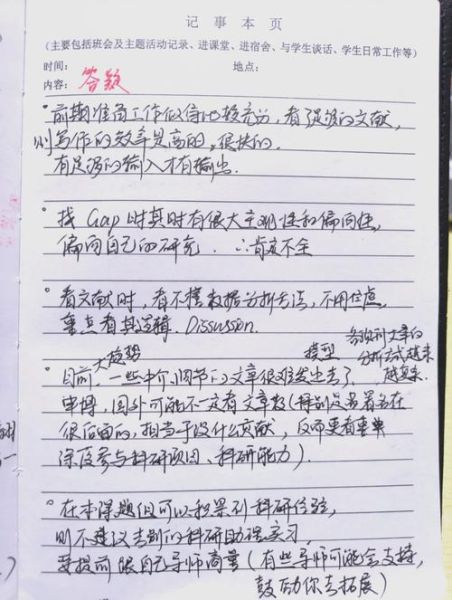 记事本页
(主要包括班会及主题活动记录、进课堂、进宿舍、与学生谈话、学生日常工作等)
时间: 地点:
内容: 答疑
前期准备工作做得比较充分,看了足够的文献,
则写作的效率是高的,很快的.
有足够的输入才有输出.
找 Gap 时其时有很大主观性和偏向性,
偏向自己的研究. ∴肯定不全
看文献时,看不懂数据分析方法,不用焦虑
重点看其逻辑. Disscussion.
大趋势 模型 各类期刊文章的
目前,一些中介、调节的文章很难发出去了. 分析方式越来
越复杂.
申博,国外可能不一定看文章数(特别是署名在
很后面的,相当于没什么贡献,反而更看重
深度参与科研项目、科研能力).
在本课题组可以积累到科研经验,
则不建议去别的科研助理实习,
要提前跟自己导师商量(有些导师可能会支持,
鼓励你去拓展)